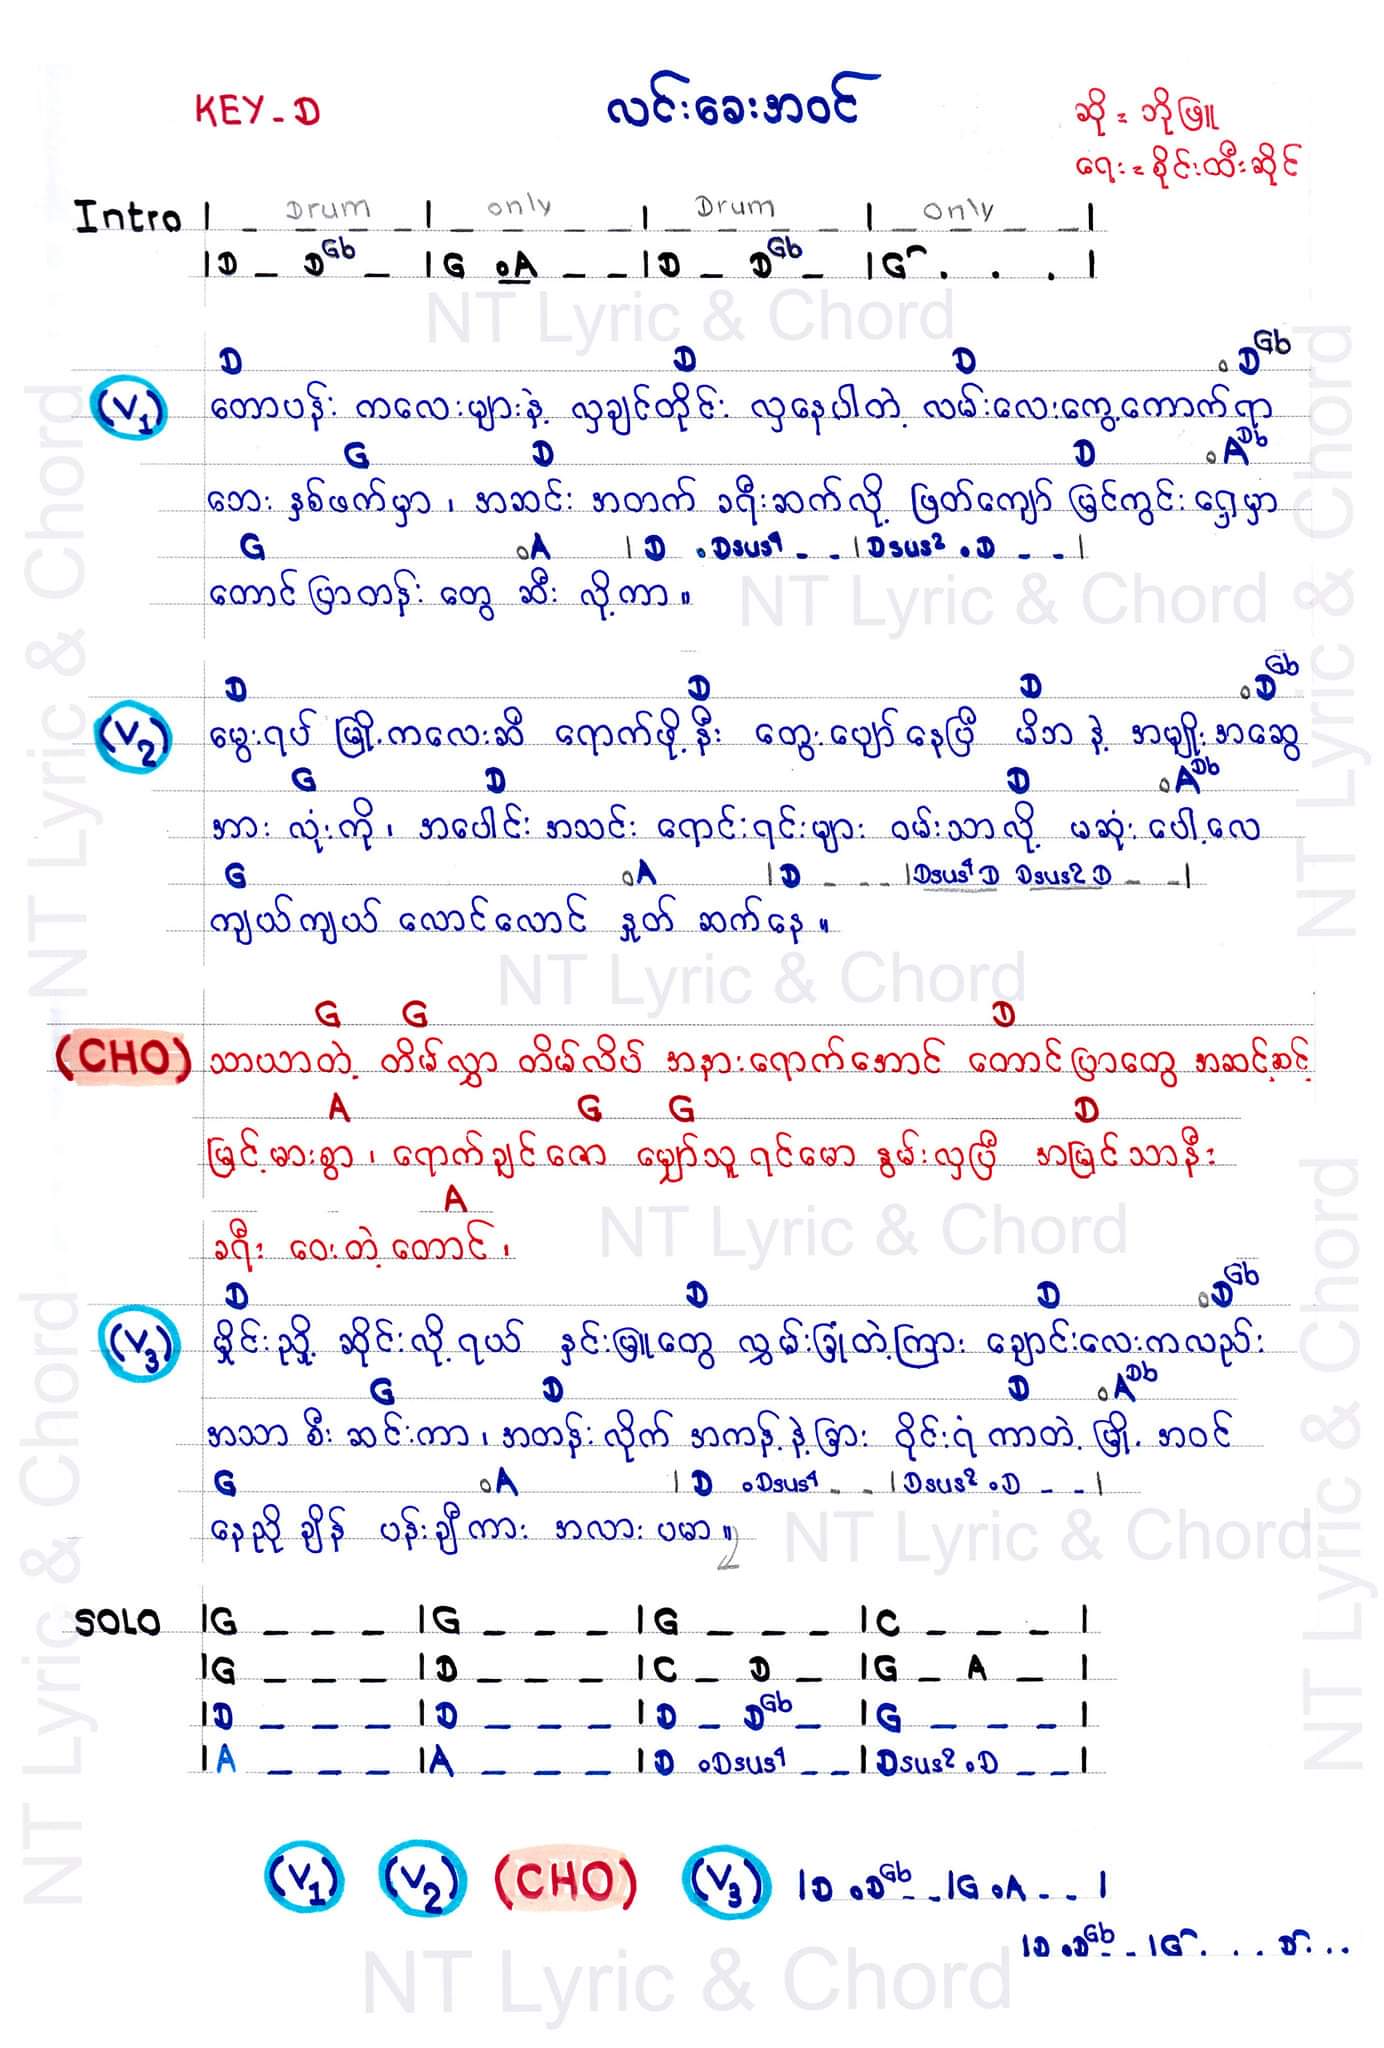 KEY - D
လင်းခေးအဝင်
ဆို = ဘိုဖြူ
ရေး = စိုင်းထီးဆိုင်
Intro | _ Drum _ _ | _ only _ _ | _ Drum _ _ | _ only _ _ |
| D _ D Gb _ | G . A _ _ | D _ D Gb _ | G . . . |
NT Lyric & Chord
D D D . D Gb
(V1) တောပန်း ကလေးများနဲ့ လှချင်တိုင်း လှနေပါတဲ့ လမ်းလေးကွေ့ကောက်ရာ
G D D . A Db
ဘေး နှစ်ဖက်မှာ ၊ အဆင်း အတက် ခရီးဆက်လို့ ဖြတ်ကျော် မြင်ကွင်း ရှေ့မှာ
G . A | D . Dsus4 - - | Dsus2 . D - - |
တောင်ပြာတန်း တွေ ဆီး လို့ကာ ။
NT Lyric & Chord
D D D . D Gb
(V2) မွေးရပ် မြို့ကလေးဆီ ရောက်ဖို့နီး တွေးပျော်နေပြီ မိဘ နဲ့ အမျိုးအဆွေ
G D D . A Db
အား လုံးကို ၊ အပေါင်း အသင်း ရောင်းရင်းများ ဝမ်းသာလို့ မဆုံး ပေါ့လေ
G . A | D - - - | Dsus4 D Dsus2 D - - |
ကျယ်ကျယ် လောင်လောင် နှုတ် ဆက်နေ ။
NT Lyric & Chord
G G D
(CHO) သာယာတဲ့ တိမ်လွှာ တိမ်လိပ် အနားရောက်အောင် တောင်ပြာတွေ အဆင့်ဆင့်
A G G D
မြင့်မားစွာ ၊ ရောက်ချင်ဇော မျှော်သူ ရင်မော နွမ်းလှပြီ အမြင်သာနီး
A
ခရီး ဝေးတဲ့ တောင် ၊
NT Lyric & Chord
D D D . D Gb
(V3) မှိုင်းညှို့ ဆိုင်းလို့ ရယ် နှင်းဖြူတွေ လွှမ်းခြုံတဲ့ကြား ချောင်းလေးကလည်း
G D D . A Db
အသာ စီး ဆင်းကာ ၊ အတန်းလိုက် အကန့်နဲ့ခြား ဝိုင်းရံ ကာတဲ့ မြို့ အဝင်
G . A | D . Dsus4 - - | Dsus2 . D - - |
နေညို ချိန် ပန်းချီကား အလား ပမာ ။
NT Lyric & Chord
SOLO | G _ _ _ | G _ _ _ | G _ _ _ | C _ _ _ |
| G _ _ _ | D _ _ _ | C _ D _ | G _ A _ |
| D _ _ _ | D _ _ _ | D _ D Gb _ | G _ _ _ |
| A _ _ _ | A _ _ _ | D . Dsus4 _ _ | Dsus2 . D _ _ |
(V1) (V2) (CHO) (V3) | D . D Gb - - | G . A - - |
| D . D Gb - - | G . . . D . . .
NT Lyric & Chord
NT Lyric & Chord
NT Lyric & Chord
NT Lyric & Chord
NT Lyric & Chord